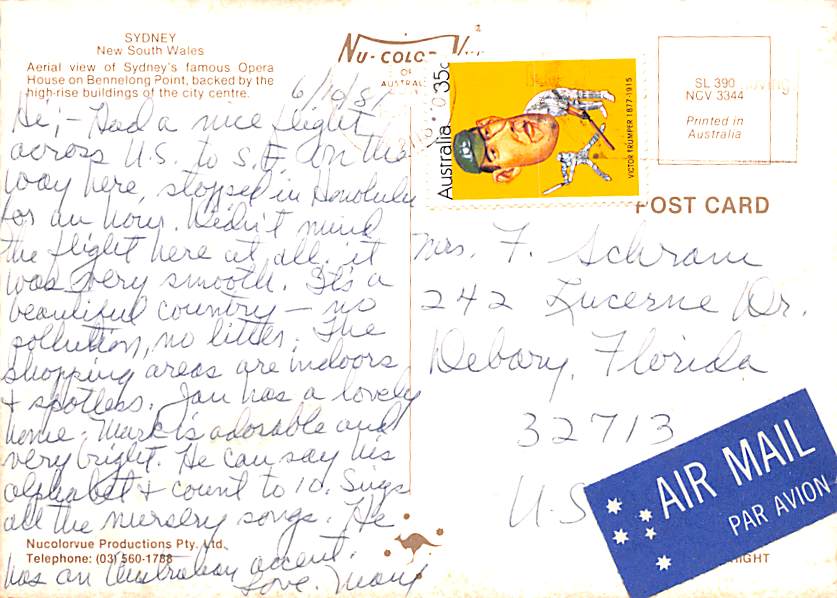 SYDNEY
New South Wales
Aerial view of Sydney's famous Opera
House on Bennelong Point, backed by the
high-rise buildings of the city centre.
6/10/81
Hi,- Had a nice flight
across U.S. to S.F. On the
way here, stopped in Honolulu
for an hour. Didn't mind
the flight here at all. it
was very smooth. It's a
beautiful country — no
pollution, no litter. The
shopping areas are indoors
+ spotless. Jan has a lovely
home. Mark is adorable and
very bright. He can say his
alphabet + count to 10. Sings
all the nursery songs. He
has an Australian accent.
Love, Mary
Nucolorvue Productions Pty. Ltd.
Telephone: (03) 560-1788
NU-COLOR-VUE
OF
AUSTRALIA
Australia 35c
VICTOR TRUMPER 1877-1915
SL 390
NCV 3344
Printed in
Australia
POST CARD
Mrs. F. Schram
242 Lucerne Dr.
Debary, Florida
32713
U.S
AIR MAIL
PAR AVION